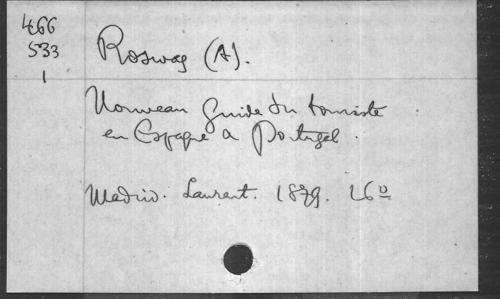 466
533
1
Roswag (A).
Nouveau Guide du touriste
en Espagne & Portugal.
Madrid. Laurent. 1879. 16º